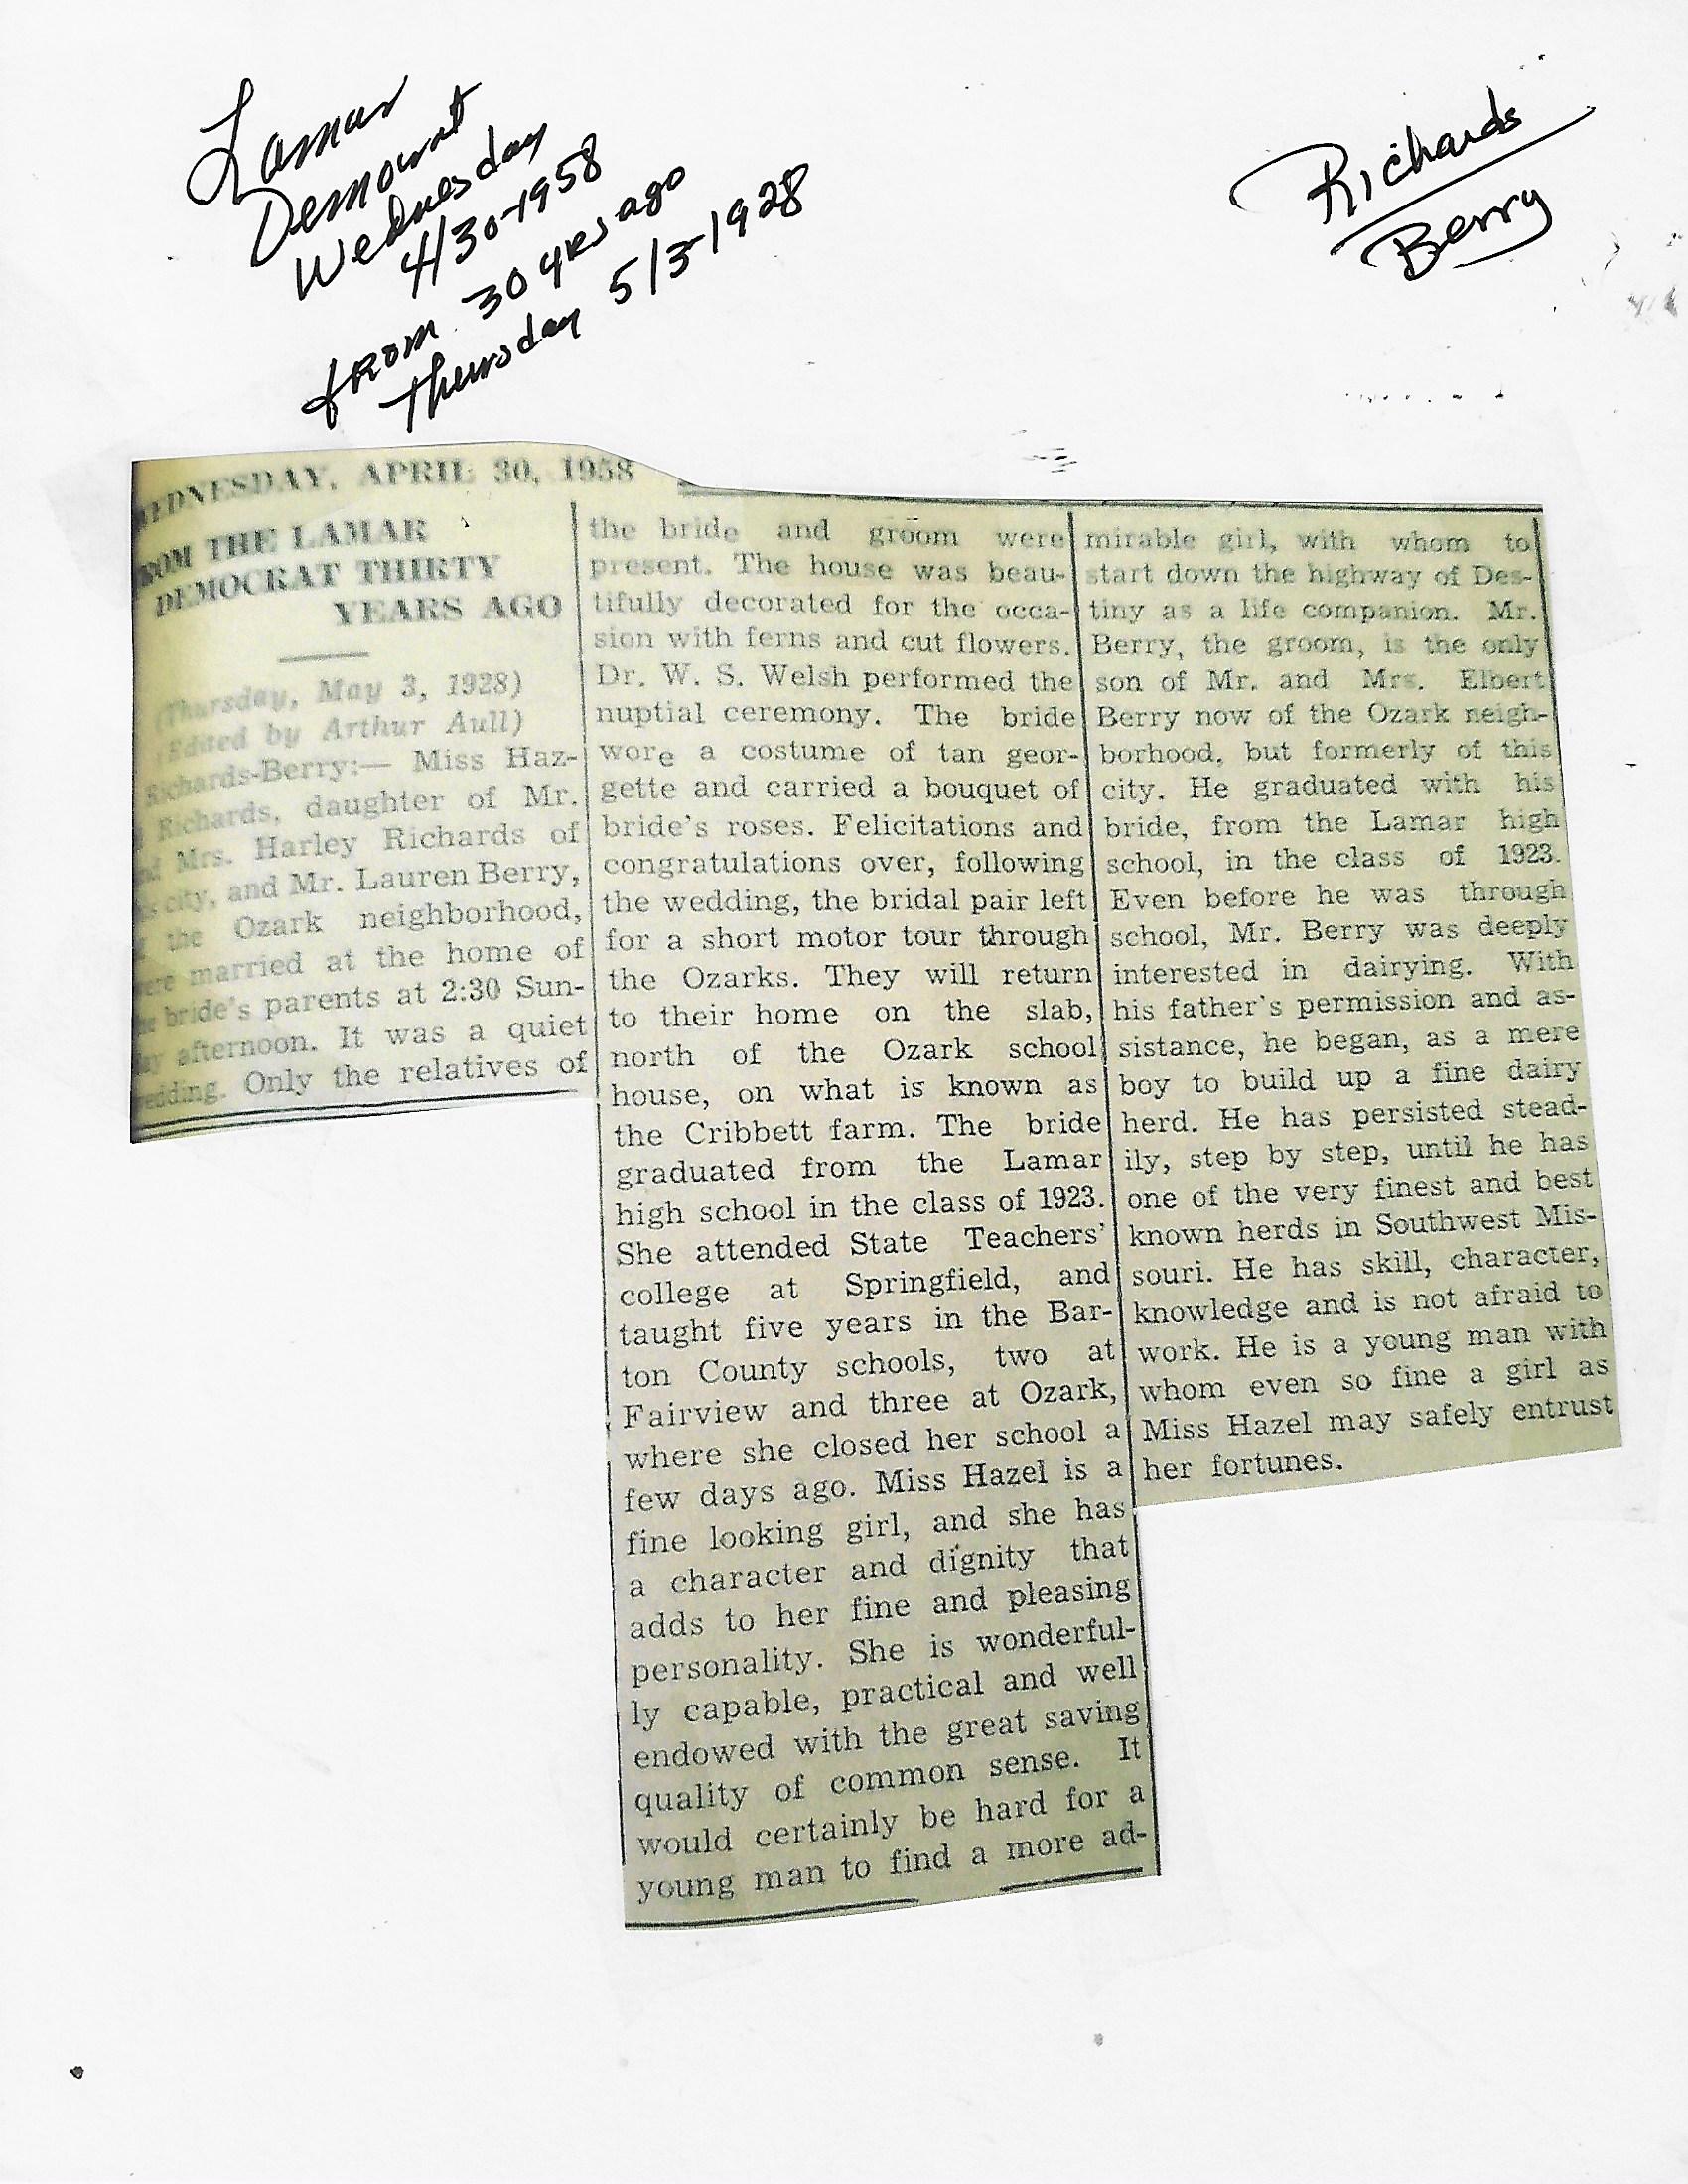 Lamar
Demount
Wednesday
4/30-1958
from 30 yrs ago
Thursday 5/3-1928
Richards
Berry
EDNESDAY, APRIL 30, 1958
ROM THE LAMAR
DEMOCRAT THIRTY
YEARS AGO
Thursday, May 3, 1928)
(Edited by Arthur Aull)
Richards-Berry:— Miss Haz-
Richards, daughter of Mr.
nd Mrs. Harley Richards of
is city, and Mr. Lauren Berry,
the Ozark neighborhood,
ere married at the home of
he bride's parents at 2:30 Sun-
ay afternoon. It was a quiet
wedding. Only the relatives of
the bride and groom were
present. The house was beau-
tifully decorated for the occa-
sion with ferns and cut flowers.
Dr. W. S. Welsh performed the
nuptial ceremony. The bride
wore a costume of tan geor-
gette and carried a bouquet of
bride's roses. Felicitations and
congratulations over, following
the wedding, the bridal pair left
for a short motor tour through
the Ozarks. They will return
to their home on the slab,
north of the Ozark school
house, on what is known as
the Cribbett farm. The bride
graduated from the Lamar
high school in the class of 1923.
She attended State Teachers'
college at Springfield, and
taught five years in the Bar-
ton County schools, two at
Fairview and three at Ozark,
where she closed her school a
few days ago. Miss Hazel is a
fine looking girl, and she has
a character and dignity that
adds to her fine and pleasing
personality. She is wonderful-
ly capable, practical and well
endowed with the great saving
quality of common sense. It
would certainly be hard for a
young man to find a more ad-
mirable girl, with whom to
start down the highway of Des-
tiny as a life companion. Mr.
Berry, the groom, is the only
son of Mr. and Mrs. Elbert
Berry now of the Ozark neigh-
borhood, but formerly of this
city. He graduated with his
bride, from the Lamar high
school, in the class of 1923.
Even before he was through
school, Mr. Berry was deeply
interested in dairying. With
his father's permission and as-
sistance, he began, as a mere
boy to build up a fine dairy
herd. He has persisted stead-
ily, step by step, until he has
one of the very finest and best
known herds in Southwest Mis-
souri. He has skill, character,
knowledge and is not afraid to
work. He is a young man with
whom even so fine a girl as
Miss Hazel may safely entrust
her fortunes.